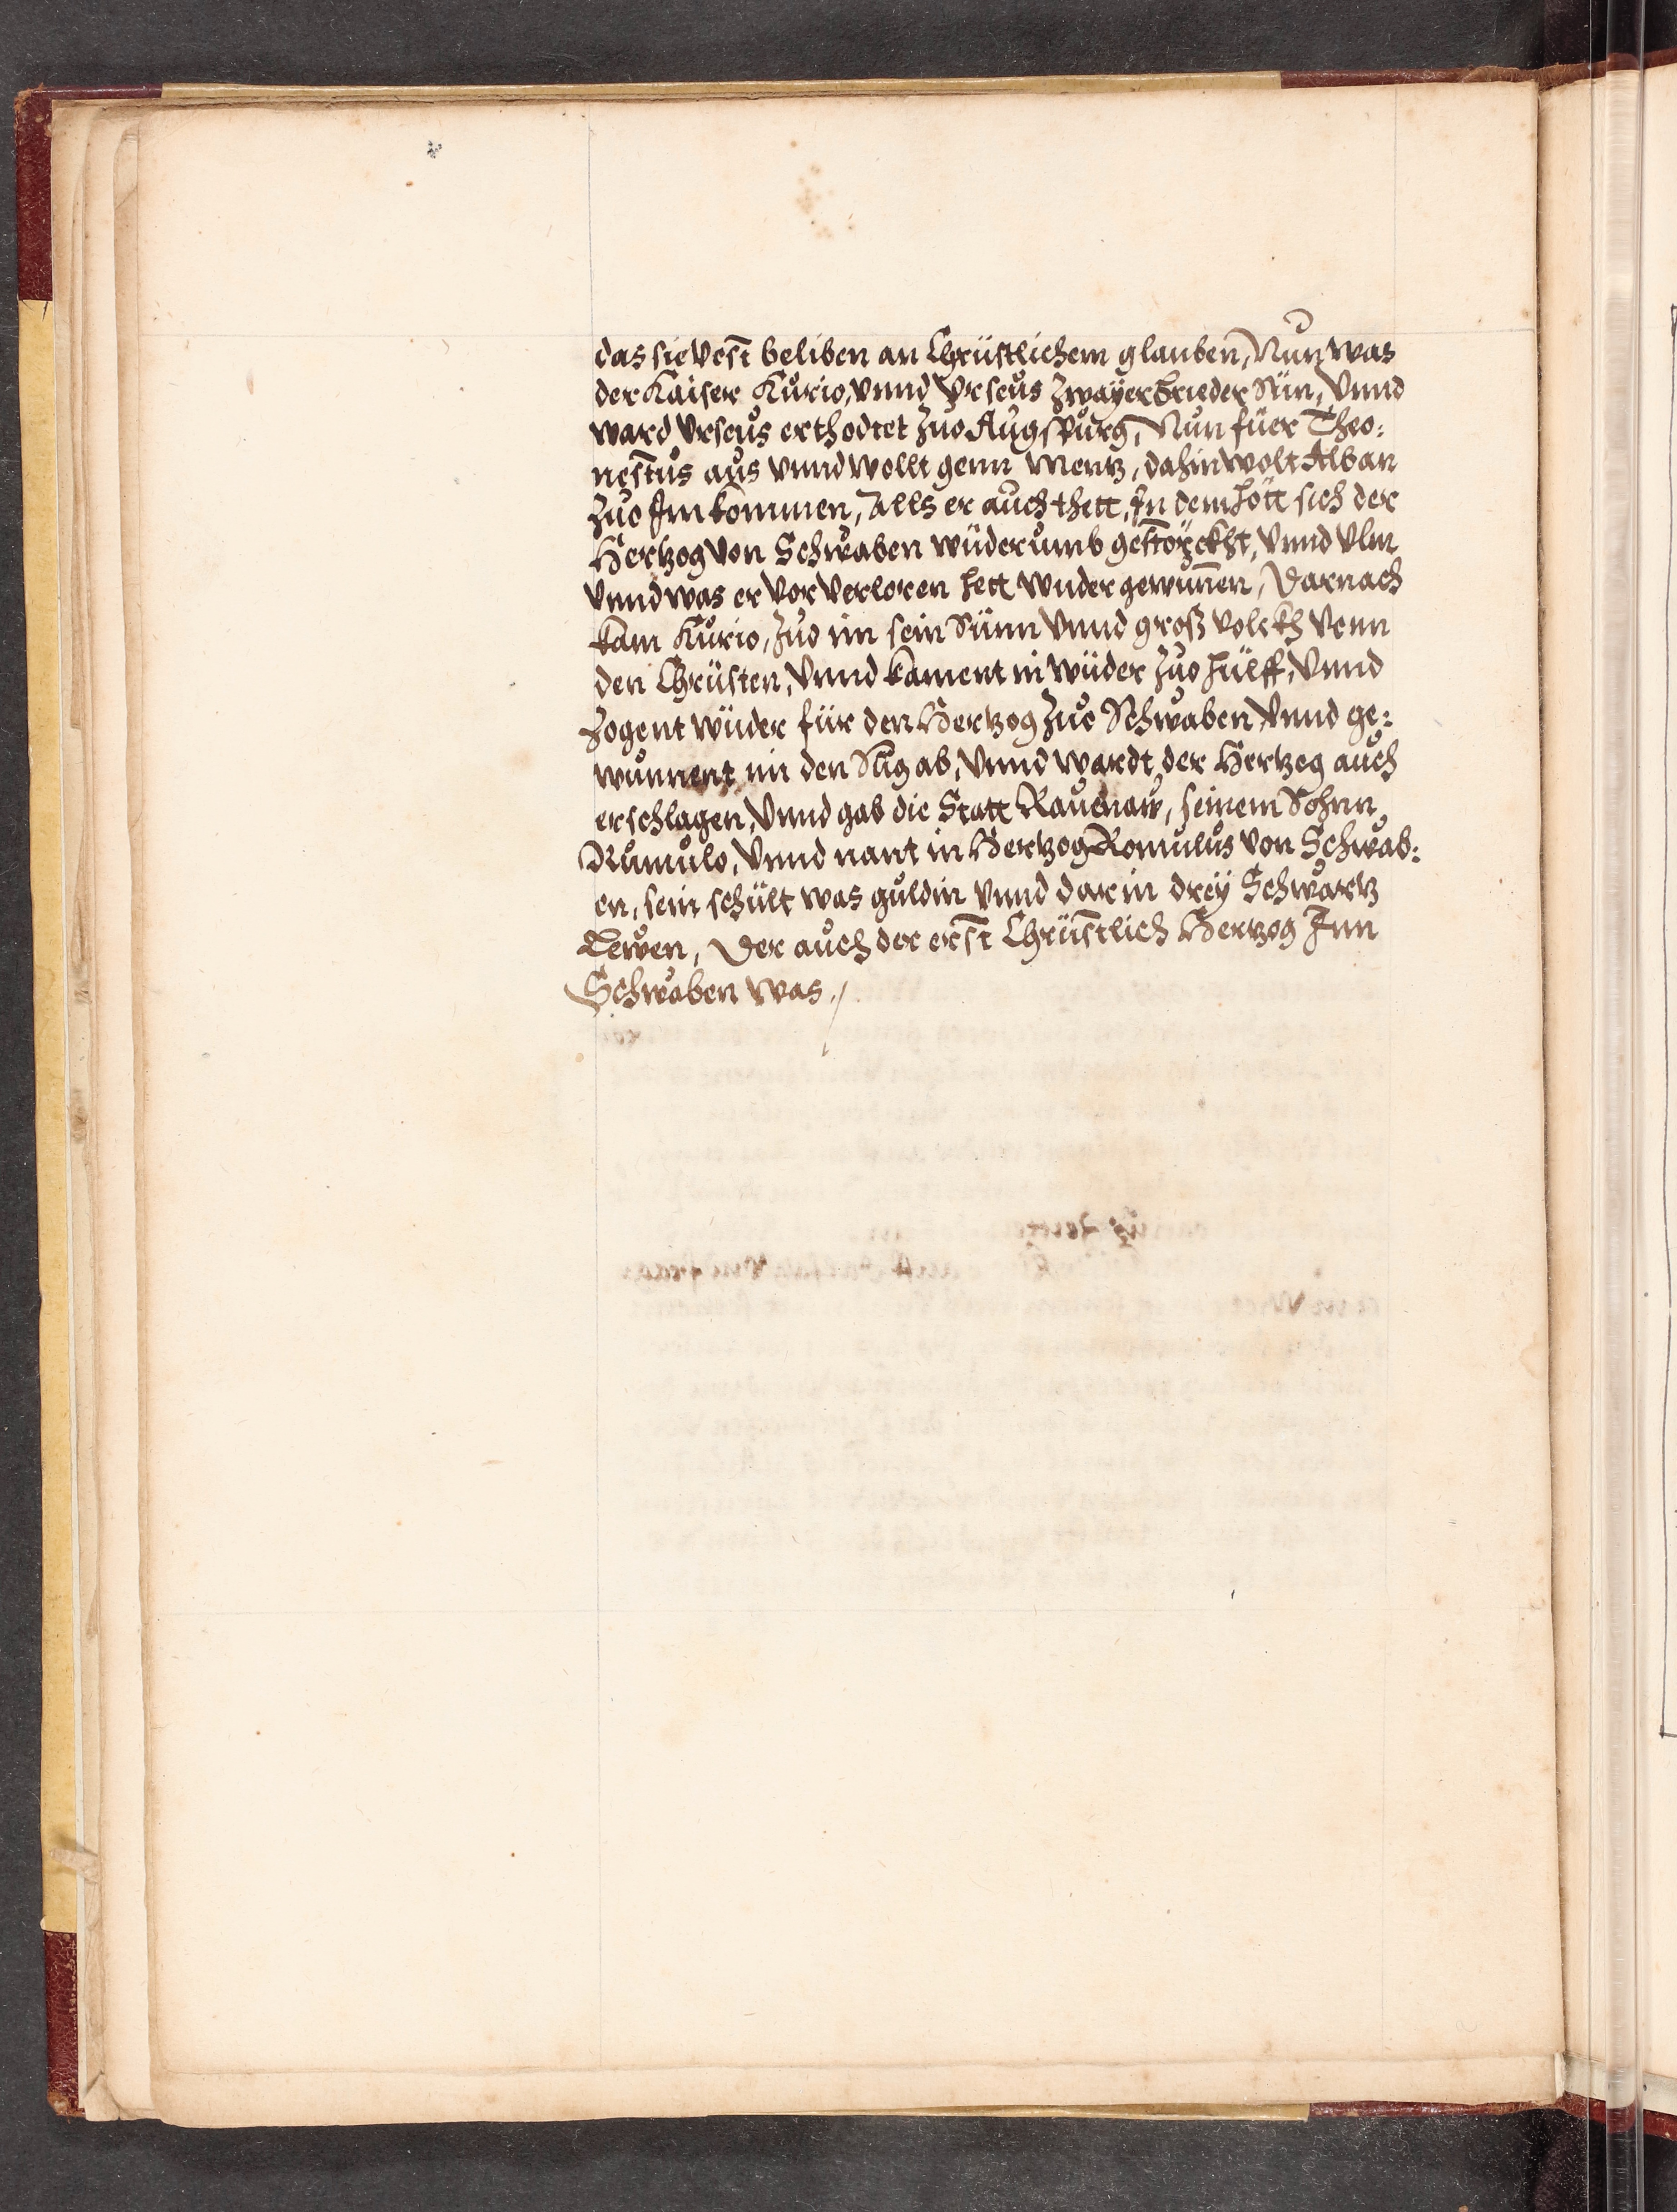 das sie vest beliben an Chrüstlichem glauben, Nun was
der Kaiser Kurio, vnnd vrseus zwayer brueder Sün, vnnd
ward vrseus erthodtet zuo Augspurg, Nun fuer Theo:
nestus aus vnnd wollt genn Mentz, dahin wolt Alban
zuo Im kommen, Alls er auch thett, In dem hött sich der
Hertzog von Schwaben wüderumb gestörckht, vnnd vlm
vnnd was er vor verloren hett wuder gewunnen, Darnach
kam Kurio, zuo im sein Sünn vnnd groß volckh venn
den Chrüsten, vnnd kament in wüder zuo hülff, vnnd
zogent wüder für den Hertzog zuo Schwaben, vnnd ge:
wunnent im den Süg ab, vnnd wardt der Hertzog auch
erschlagen, vnnd gab die Statt Rauenaw, seinem Sohnn
Rumulo, vnnd nant in Hertzog Romulus von Schwab:
en, sein schült was guldin vnnd darin dreÿ Schwartz
Lewen, Der auch der erst Chrüstlich Hertzog Inn
Schwaben was.